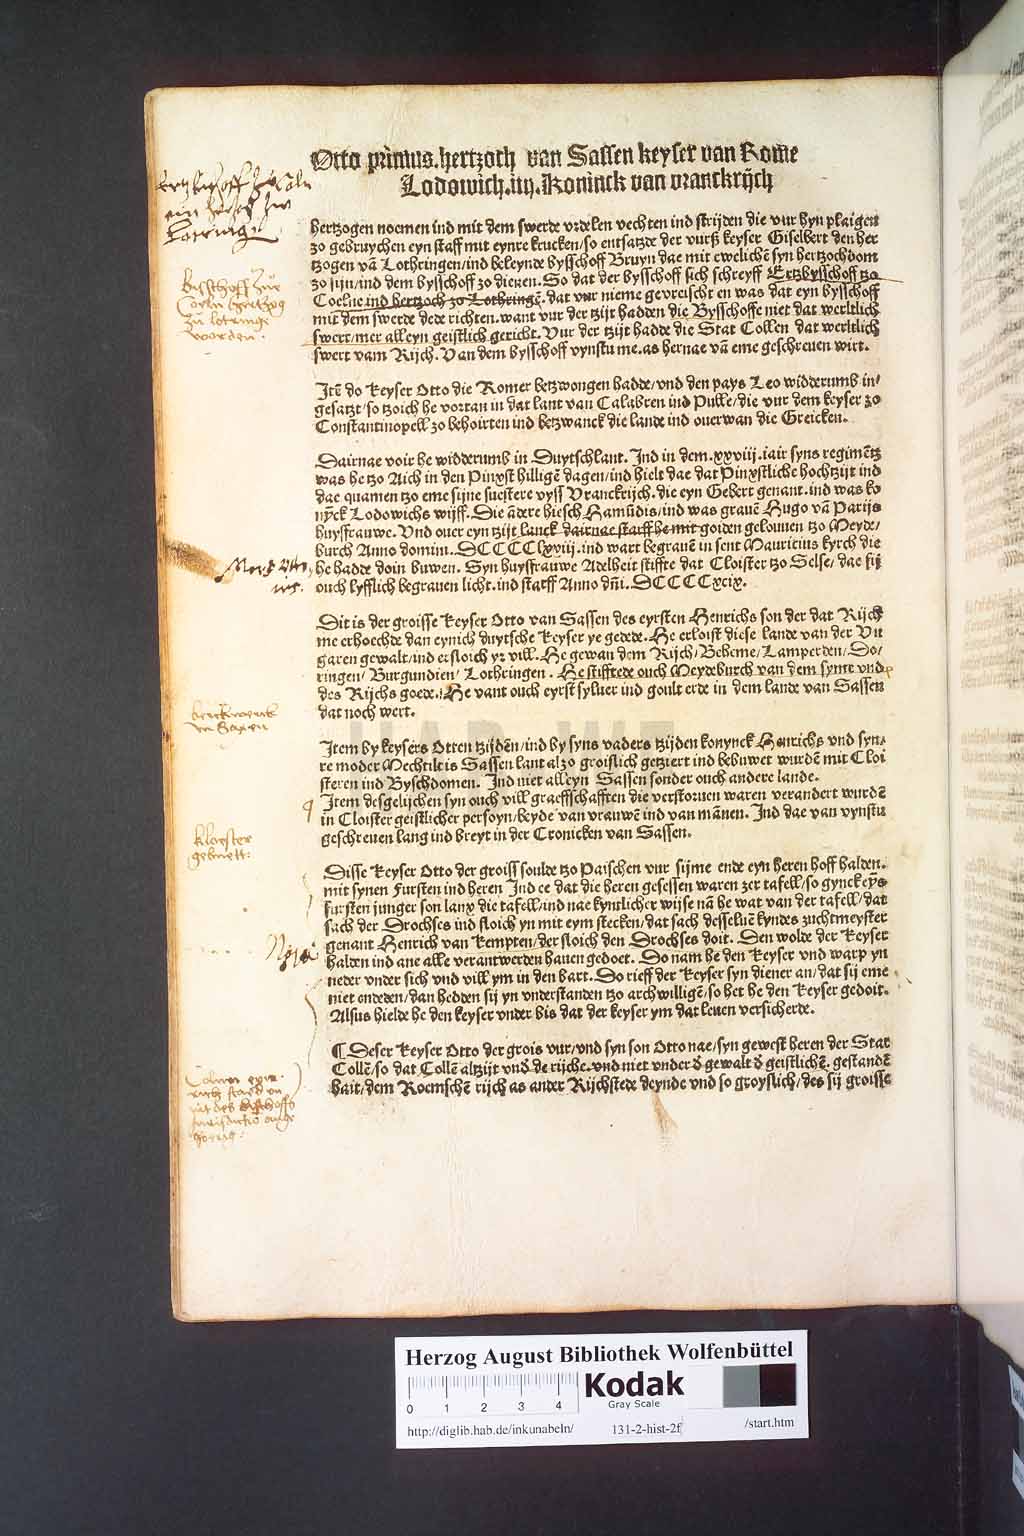 Otto primus. hertzoch van Sassen keyser van Rome
Lodowich. iiij. Koninck van vranckrijch
hertzogen noemen ind mit dem swerde vrdelen vechten ind strijden die vur hyn plaigen
zo gebruychen eyn staff mit eynre krucken/so entsatzde der vurß keyser Giselbert den her
tzogen vā Lothringen/ind beleynde bysschoff Bruyn dae mit ewelichē syn hertzochdom
zo sijn/ind dem bysschoff zo dienen. So dat der bysschoff sich schreyff Ertzbysschoff tzo
Coelne ind hertzoch zo Lothringē. dat vur nieme gevreischt en was dat eyn bysschoff
mit dem swerde dede richten. want vur der tzijt hadden die Bysschoffe niet dat werltlich
swert/mer alleyn geistlich gericht. Vur der tzijt hadde die Stat Collen dat werltlich
swert vam Rijch. Van dem bysschoff vynstu me. as hernae vā eme geschreuen wirt.
Itē do keyser Otto die Romer betzwongen hadde/vnd den pays Leo widderumb in/
gesatzt/so tzoich he vortan in dat lant van Calabren ind Pulle/die vur dem keyser zo
Constantinopell zo behoirten ind betzwanck die lande ind ouerwan die Greicken.
Dairnae voir he widderumb in Duytschlant. Ind in dem. xxviij. iair syns regimētz
was he tzo Aich in den Pinxst hilligē dagen/ind hielt dae dat Pinxstliche hochtzijt ind
dae quamen tzo eme sijne suestere vyss Vranckrijch. die eyn Gebert genant. ind was ko
nyck Lodowichs wijff. Die ādere hiesch Hamūdis/ind was grauē Hugo vā Parijs
huysfrauwe. Vnd ouer eyn tzijt lanck dairnae starff he mit goiden gelouuen tzo Meyde/
burch Anno domini. DCCCClxviij. ind wart begrauē in sent Mauricius kyrch die
he hadde doin buwen. Syn huysfrauwe Adelheit stiffte dat Cloister tzo Selse/dae sij
ouch lyfflich begrauen licht. ind starff Anno dñi. DCCCCxcix.
Dit is der groisse keyser Otto van Sassen des eyrsten Henrichs son der dat Rijch
me erhoechde dan eynich duytsche keyser ye gedede. He erloist diese lande van der Vn
garen gewalt/ind ersloich yr vill. He gewan dem Rijch/Beheme/Lamperden/Do/
ringen/Burgundien/Lothringen. He stifftede ouch Meydeburch van dem synre vnd
des Rijchs goede. He vant ouch eyrst syluer ind goult erde in dem lande van Sassen
dat noch wert.
Item by keysers Otten tzijdēn/ind by syns vaders tzijden konynck Henrichs vnd syn/
re moder Mechtildis Sassen lant alzo groislich getziert ind bebuwet wurdē mit Cloi
steren ind Byschdomen. Ind niet alleyn Sassen sonder ouch andere lande.
Item desgelijchen syn ouch vill graeffschafften die verstoruen waren verandert wurdē
in Cloister geistlicher persoyn/beyde van vrauwē ind van mānen. Ind dae van vynstu
geschreuen lang ind breyt in der Cronicken van Sassen.
Disse keyser Otto der groiss soulde tzo Paischen vur sijme ende eyn heren hoff halden.
mit synen Fursten ind heren Ind ee dat die heren gesessen waren zer tafell/so gynck eyns
fursten junger son lanx die tafell/ind nae kyntlicher wijse nā he wat van der tafell/dat
sach der Drochses ind sloich yn mit eym stecken/dat sach desseluē kyndes zuchtmeyster
genant Henrich van Kempten/der sloich den Drochses doit. Den wolde der keyser
halden ind ane alle verantwerden hauen gedoet. Do nam he den keyser vnd warp yn
neder vnder sich vnd vill ym in den bart. Do rieff der keyser syn diener an/dat sij eme
niet endeden/dan hedden sij yn vnderstanden tzo archwilligē/so het he den keyser gedoit.
Alsus hielde he den keyser vnder bis dat der keyser ym dat leuen versicherde.
¶ Deser keyser Otto der grois vur/vnd syn son Otto nae/syn gewest heren der Stat
Collē/so dat Collē altzijt vnđ de rijche. vnd niet vnder đ gewalt đ geistlichē. gestandē
hait/dem Roemschē rijch as ander Rijchstede deynde vnd so groyslich/des sij groisse
Bisschoff zur
Coeln hertzog
zu lotringe
worden.
berckwerck
in Saxen
kloester
gebuett:
HAB WF
Herzog August Bibliothek Wolfenbüttel
0 1 2 3 4
Kodak
Gray Scale
http://diglib.hab.de/inkunabeln/ 131-2-hist-2f /start.htm